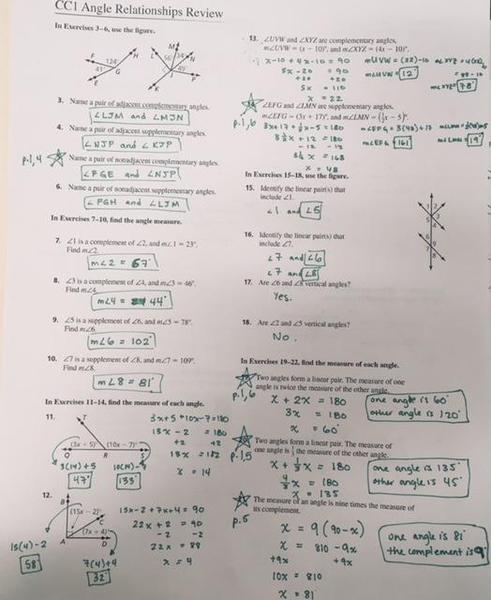 CC1 Angle Relationships Review
In Exercises 3–6, use the figure.
3. Name a pair of adjacent complementary angles.
∠LJM and ∠MJN
4. Name a pair of adjacent supplementary angles.
∠NJP and ∠KJP
p.1,4
Name a pair of nonadjacent complementary angles.
∠FGE and ∠NJP
6. Name a pair of nonadjacent supplementary angles.
∠FGH and ∠LJM
In Exercises 7–10, find the angle measure.
7. ∠1 is a complement of ∠2, and m∠1 = 23°.
Find m∠2.
m∠2 = 67°
8. ∠3 is a complement of ∠4, and m∠3 = 46°.
Find m∠4.
m∠4 = 44°
9. ∠5 is a supplement of ∠6, and m∠5 = 78°.
Find m∠6.
m∠6 = 102°
10. ∠7 is a supplement of ∠8, and m∠7 = 109°.
Find m∠8.
m∠8 = 81°
In Exercises 11–14, find the measure of each angle.
11.
T
(3x + 5)° (10x − 7)°
Q R S
3x+5+10x-7=180
13x - 2 = 180
+2 +2
13x = 182
x = 14
3(14)+5
47°
133°
12.
B
(15x − 2)°
C
(7x + 4)°
A D
15x-2+7x+4=90
22x + 2 = 90
-2 -2
22x = 88
x = 4
15(4)-2
58
7(4)+4
32°
13. ∠UVW and ∠XYZ are complementary angles,
m∠UVW = (x − 10)°, and m∠XYZ = (4x − 10)°.
x-10+4x-10=90
5x - 20 = 90
+20 +20
5x = 110
x = 22
m∠UVW = (22)-10
m∠UVW = 12°
78°
∠EFG and ∠LMN are supplementary angles.
p.1,6
3x+17+½x-5=180
3½x + 12 = 180
-12 -12
3½x = 168
x = 48
m∠EFG = 3(48)+17
m∠EFG = 161
19°
In Exercises 15–18, use the figure.
15. Identify the linear pair(s) that
include ∠1.
∠1 and ∠5
16. Identify the linear pair(s) that
include ∠7.
∠7 and ∠6
∠7 and ∠8
17. Are ∠6 and ∠8 vertical angles?
Yes.
18. Are ∠2 and ∠5 vertical angles?
No.
In Exercises 19–22, find the measure of each angle.
Two angles form a linear pair. The measure of one
angle is twice the measure of the other angle.
p.1,6
x + 2x = 180
3x = 180
x = 60°
one angle is 60°
other angle is 120°
Two angles form a linear pair. The measure of
one angle is ⅓ the measure of the other angle.
p.1,5
x + ⅓x = 180
4/3 x = 180
x = 135
one angle is 135°
other angle is 45°
The measure of an angle is nine times the measure of
its complement.
p.5
x = 9(90-x)
x = 810 - 9x
+9x +9x
10x = 810
x = 81
one angle is 81°
the complement is 9°